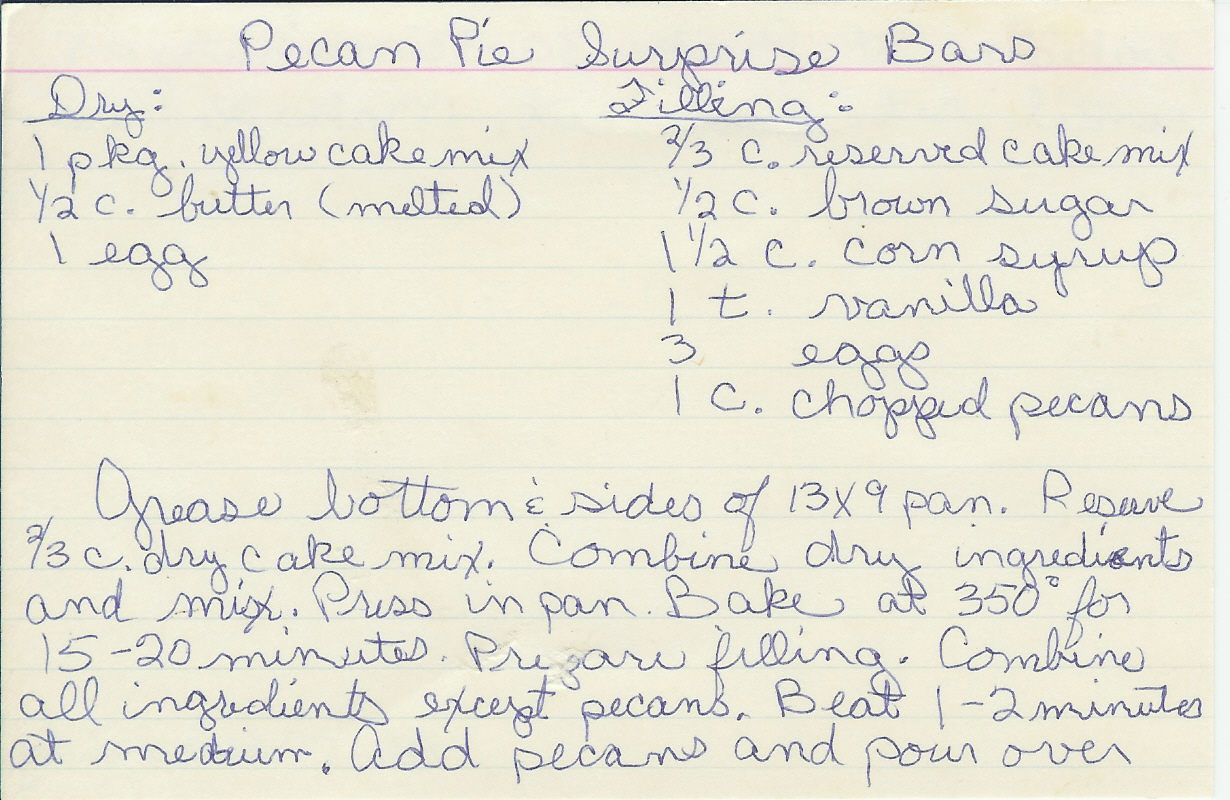 Pecan Pie Surprise Bars
Dry:
1 pkg. yellow cake mix
1/2 c. butter (melted)
1 egg
Filling:
2/3 c. reserved cake mix
1/2 c. brown sugar
1 1/2 c. corn syrup
1 t. vanilla
3 eggs
1 c. chopped pecans
Grease bottom & sides of 13x9 pan. Reserve
2/3 c. dry cake mix. Combine dry ingredients
and mix. Press in pan. Bake at 350° for
15-20 minutes. Prepare filling. Combine
all ingredients except pecans. Beat 1-2 minutes
at medium. Add pecans and pour over